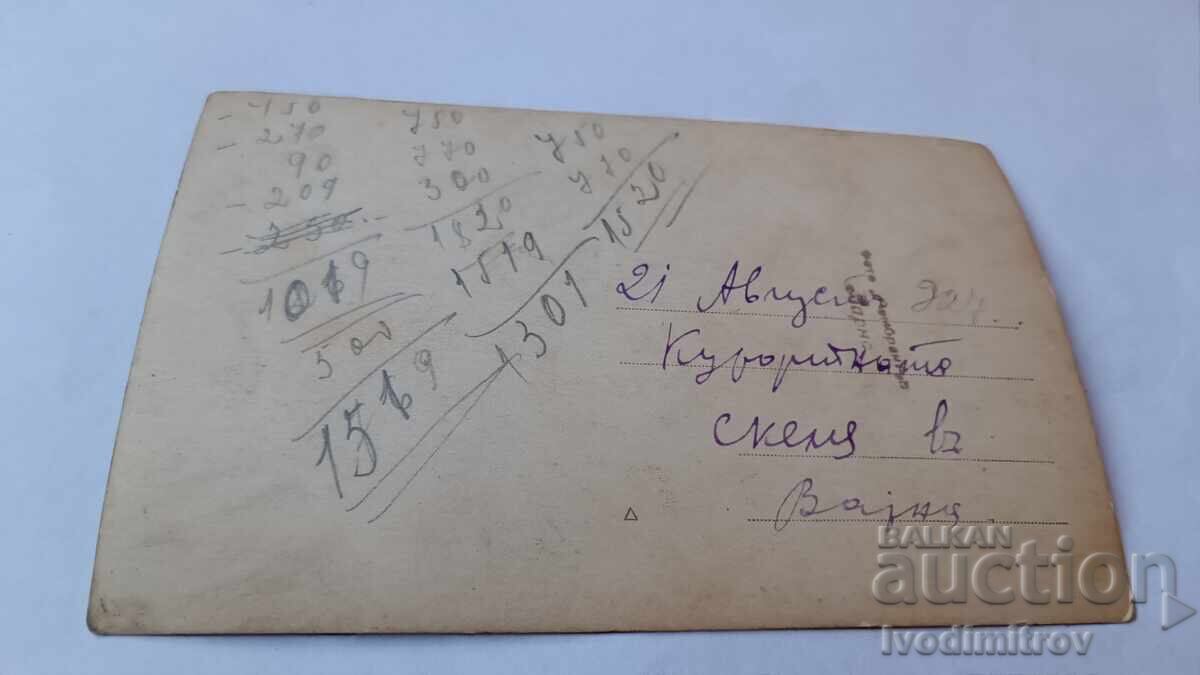 - 150
- 270
90
- 209
- 250
1019
500
1519
750
770
300
1820
1519
1301
750
770
1520
21 Август
Курортната
скеля въ
BALKAN
auction
Ivodimitrov